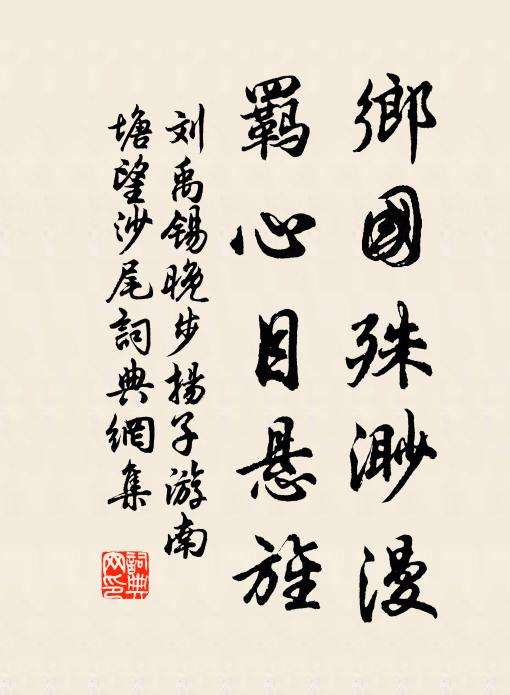 鄉國殊渺漫
羈心目悬旌
刘禹锡晚步揚子游南
塘望沙尾詞典網集
詞典网印